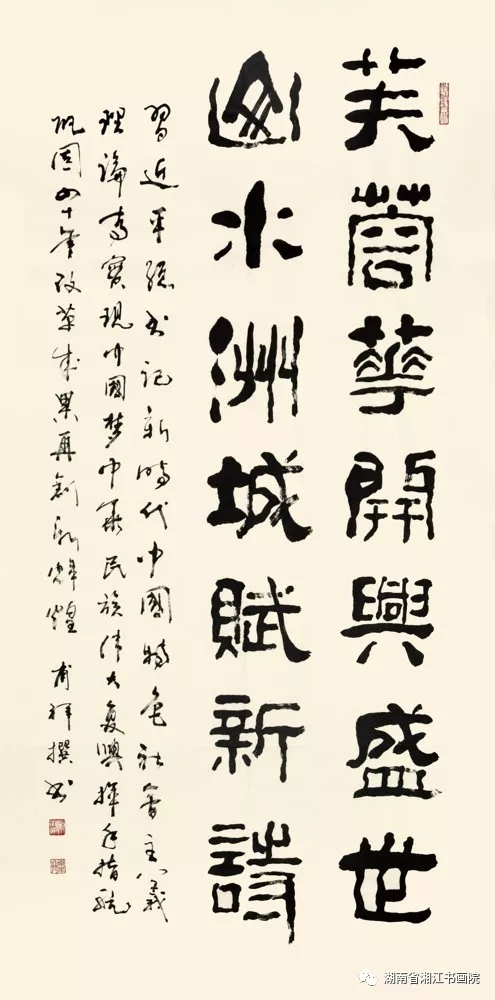 芙蓉華開興盛世
山水洲城賦新詩
習近平總书記新時代中國特色社會主義
理論實現中國梦中華民族伟大复興揮手指航
巩固四十年改革成果再創新輝煌 甫祥撰书
湖南省湘江书画院